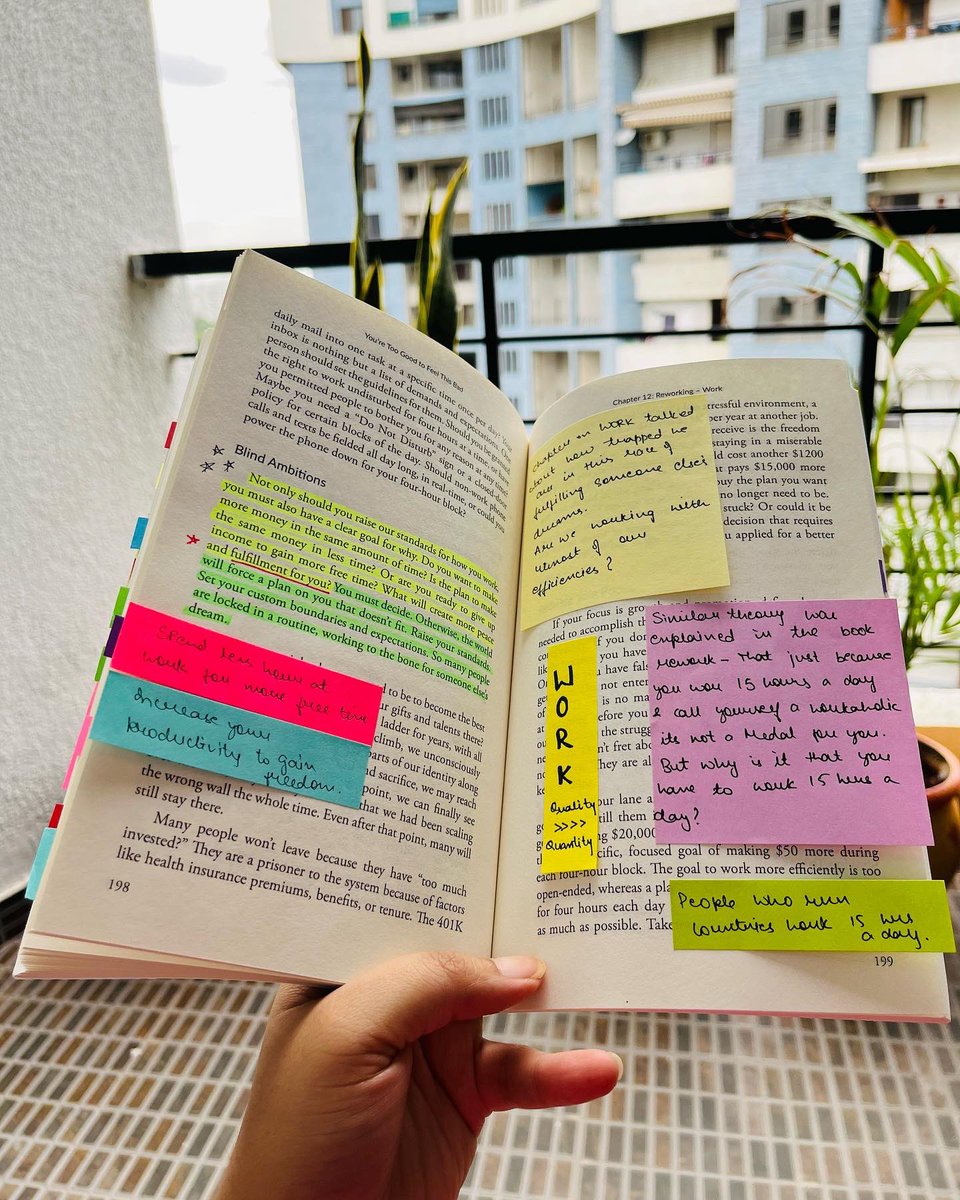 You're Too Good to Feel This Bad
daily mail into one task at a specific time once per day? Your
inbox is nothing but a list of demands and expectations. One
person should set the guidelines for them. Should you be granted
the right to work undisturbed for four hours at a time, or have
you permitted people to bother you for any reason at any time?
Maybe you need a "Do Not Disturb" sign or a closed-door
policy for certain blocks of the day. Should non-work phone
calls and texts be fielded all day long, in real time, or could you
power the phone down for your four-hour block?
Blind Ambitions
Not only should you raise our standards for how you work,
you must also have a clear goal for why. Do you want to make
more money in the same amount of time? Is the plan to make
the same money in less time? Or are you ready to give up
income to gain more free time? What will create more peace
and fulfillment for you? You must decide. Otherwise, the world
will force a plan on you that doesn't fit. Raise your standards.
Set your custom boundaries and expectations. So many people
are locked in a routine, working to the bone for someone else's
dream.
Spend less hours at
work for more free time
Increase your
productivity to gain
freedom.
d to be to become the best
ur gifts and talents there?
ladder for years, with all
climb, we unconsciously
parts of our identity along
nd sacrifice, we may reach
point, we can finally see
that we had been scaling
the wrong wall the whole time. Even after that point, many will
still stay there.
Many people won't leave because they have "too much
invested?" They are a prisoner to the system because of factors
like health insurance premiums, benefits, or tenure. The 401K
198
Chapter 12: Reworking – Work
Chapter on WORK talked
about how trapped we
are in this race of
fulfilling someone else's
dreams.
Are we working with
utmost of our
efficiencies?
tressful environment, a
per year at another job.
receive is the freedom
staying in a miserable
ld cost another $1200
at pays $15,000 more
buy the plan you want
no longer need to be.
stuck? Or could it be
decision that requires
u applied for a better
If your focus is
needed to accomplish
WORK
Quality
>>>>
Quantity
Similar theory was
explained in the book
Rework – That just because
you work 15 hours a day
& call yourself a workaholic
its not a Medal for you.
But why is it that you
have to work 15 hrs a
day?
our lane
till them
ng $20,000
cific, focused goal of making $50 more during
each four-hour block. The goal to work more efficiently is too
open-ended, whereas a
for four hours each day
as much as possible. Take
People who run
countries work 15 hrs
a day.
199